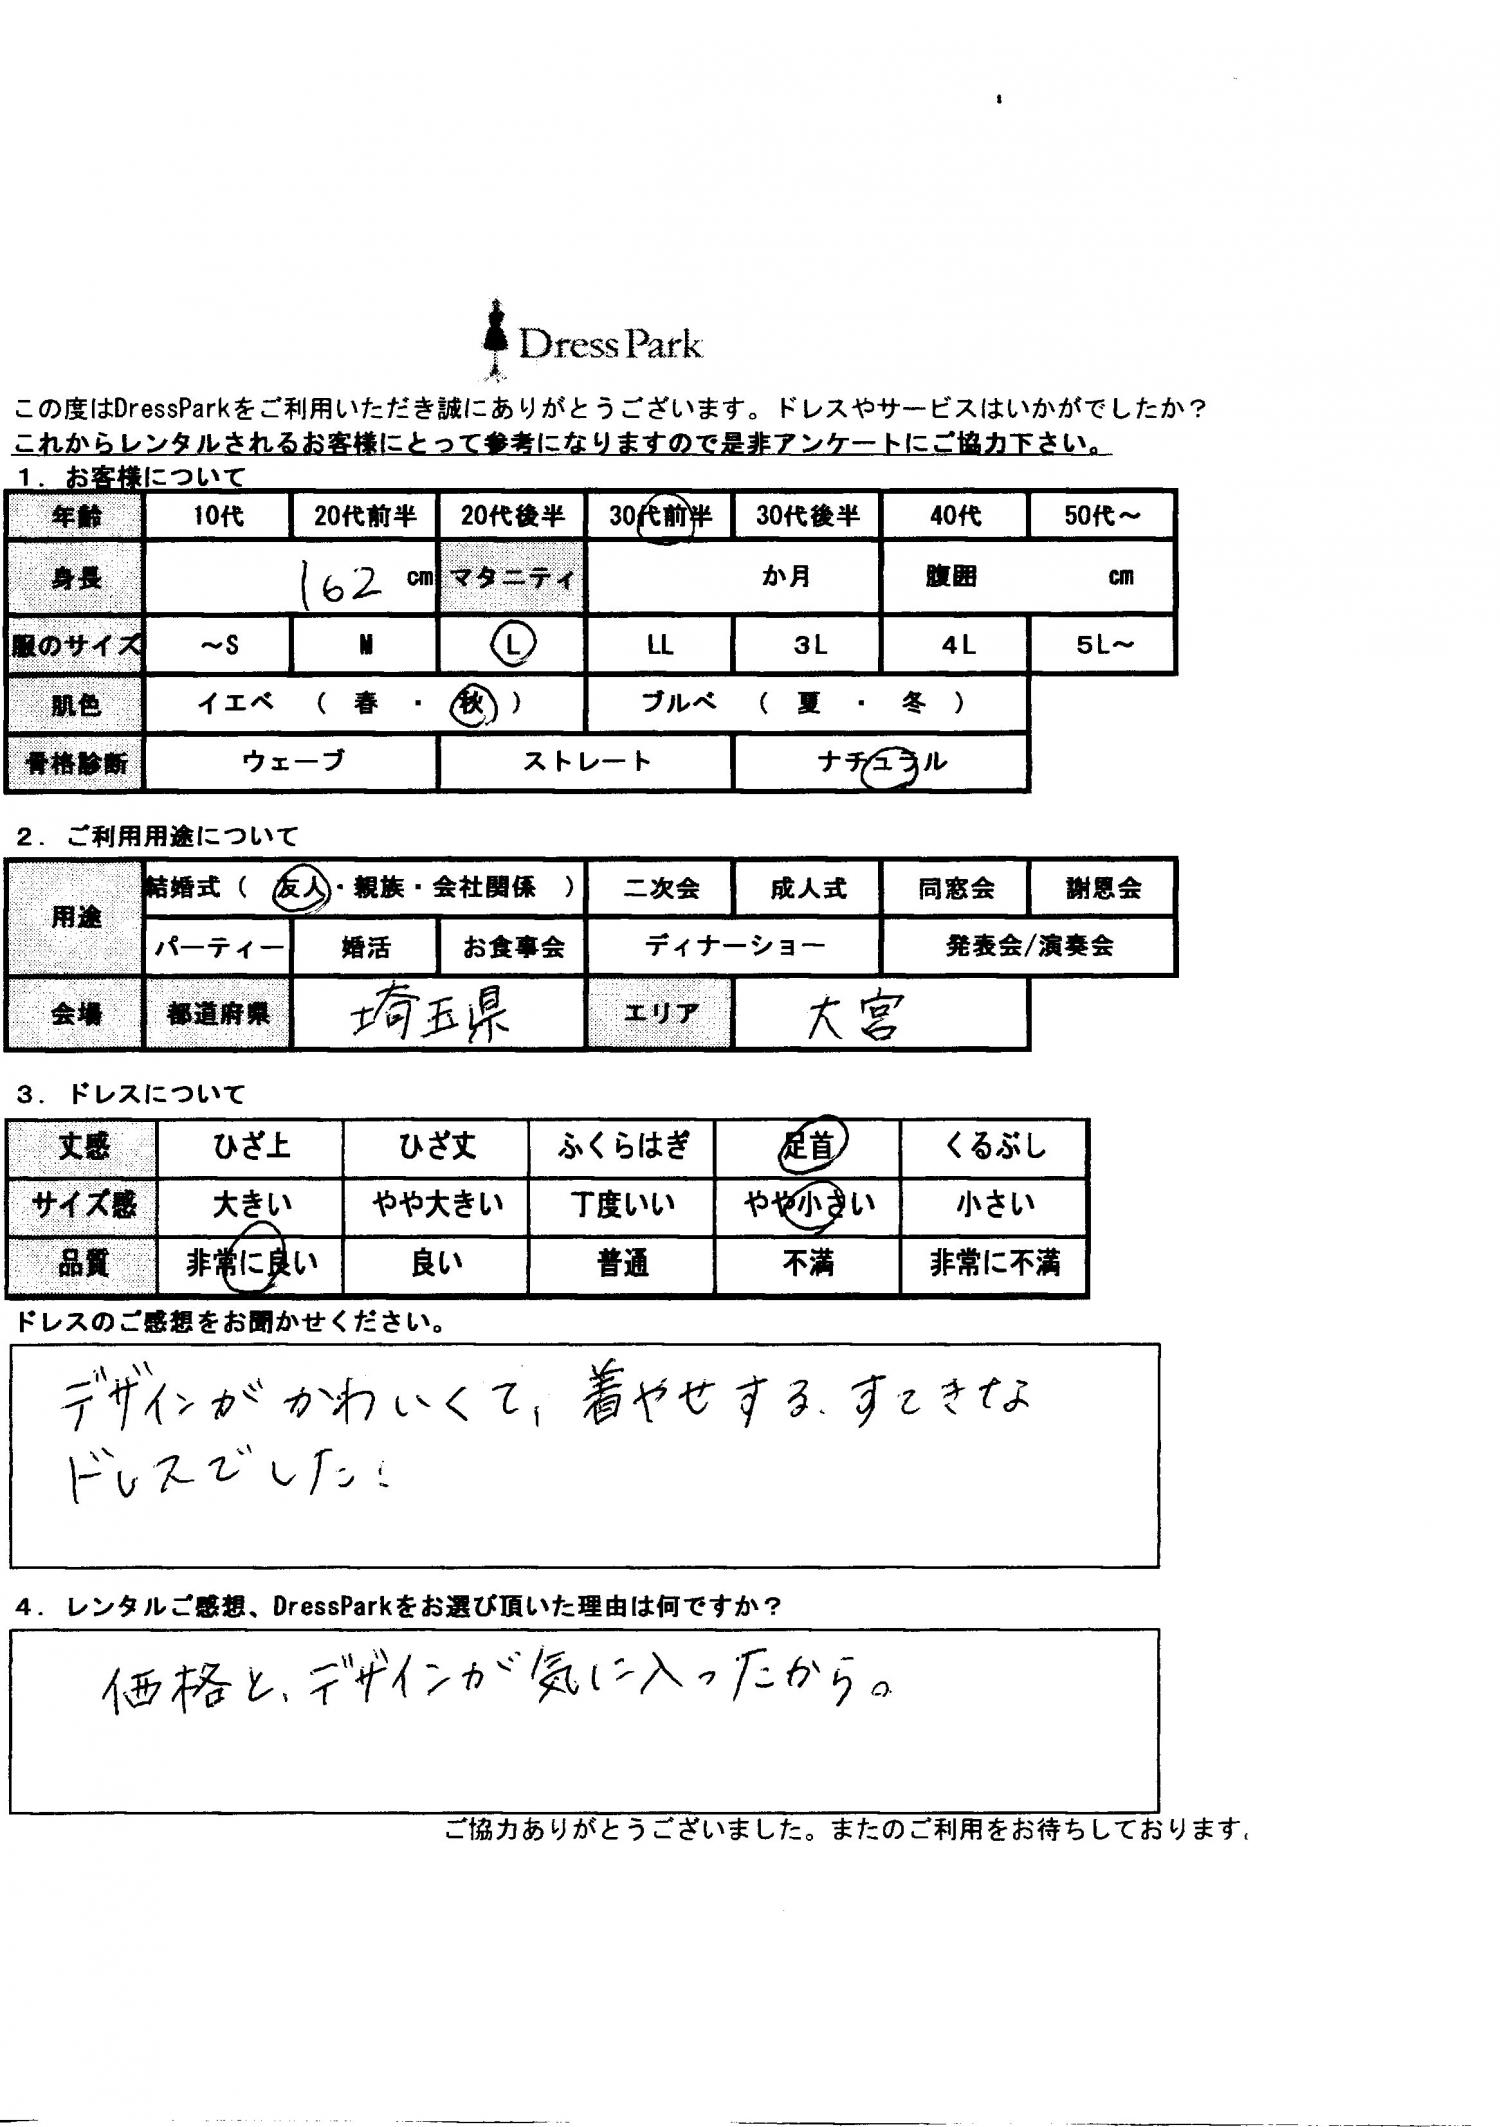 Dress Park
この度はDressParkをご利用いただき誠にありがとうございます。ドレスやサービスはいかがでしたか？
これからレンタルされるお客様にとって参考になりますので是非アンケートにご協力下さい。
１．お客様について
年齢 10代 20代前半 20代後半 30代前半 30代後半 40代 50代～
身長 162 cm マタニティ か月 腹囲 cm
服のサイズ ～S M L LL 3L 4L 5L～
肌色 イエベ （ 春 ・ 秋 ） ブルベ （ 夏 ・ 冬 ）
骨格診断 ウェーブ ストレート ナチュラル
２．ご利用用途について
用途 結婚式（ 友人・親族・会社関係 ） 二次会 成人式 同窓会 謝恩会
パーティー 婚活 お食事会 ディナーショー 発表会/演奏会
会場 都道府県 埼玉県 エリア 大宮
３．ドレスについて
丈感 ひざ上 ひざ丈 ふくらはぎ 足首 くるぶし
サイズ感 大きい やや大きい 丁度いい やや小さい 小さい
品質 非常に良い 良い 普通 不満 非常に不満
ドレスのご感想をお聞かせください。
デザインがかわいくて、着やせする、すてきな
ドレスでした！
４．レンタルご感想、DressParkをお選び頂いた理由は何ですか？
価格と、デザインが気に入ったから。
ご協力ありがとうございました。またのご利用をお待ちしております。